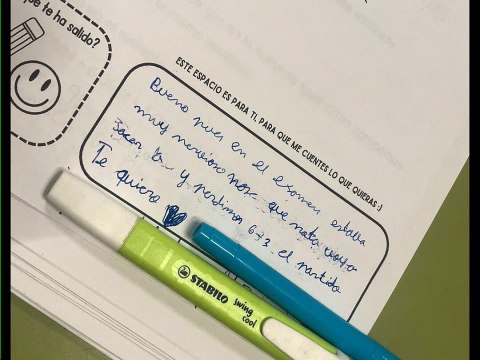 que te ha salido?
ESTE ESPACIO ES PARA TI, PARA QUE ME CUENTES LO QUE QUIERAS :)
Bueno pues en el examen estaba
muy nervioso que nota voya
sacar y perdimos 6-3 el partido
Te quiero
STABILO swing cool